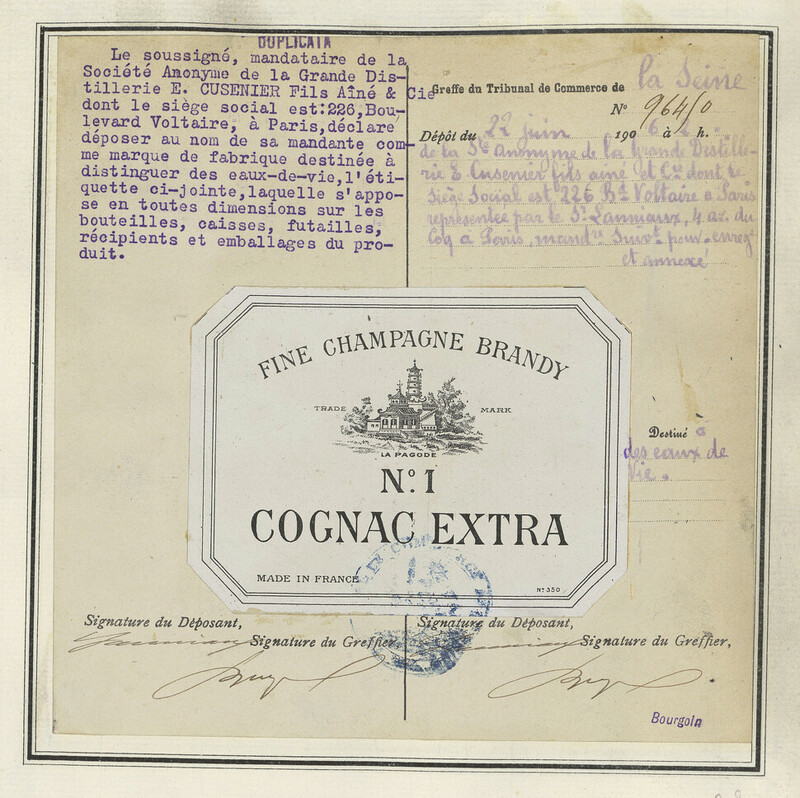 DUPLICATA
Le soussigné, mandataire de la
Société Anonyme de la Grande Dis-
tillerie E. CUSENIER Fils Aîné & Cie
dont le siège social est:226,Bou-
levard Voltaire, à Paris,déclare
déposer au nom de sa mandante com-
me marque de fabrique destinée à
distinguer des eaux-de-vie,l'éti-
quette ci-jointe,laquelle s'appo-
se en toutes dimensions sur les
bouteilles, caisses, futailles,
récipients et emballages du pro-
duit.
Greffe du Tribunal de Commerce de la Seine
N° 964/0
Dépôt du 22 juin 1906 à h.
de la Sté anonyme de la Grande Distille-
rie E. Cusenier fils ainé et Cie dont le
Siège Social est 226 Bd Voltaire a Paris
représentée par le Sr Lanniaux, 4 av. du
Coq a Paris, mandre Suivt pouv. enregé
et annexé
FINE CHAMPAGNE BRANDY
TRADE MARK
LA PAGODE
N°. 1
COGNAC EXTRA
MADE IN FRANCE
N° 350
Destiné à
des eaux de
Vie.
Signature du Déposant,
Signature du Greffier,
Signature du Déposant,
Signature du Greffier,
Bourgoin